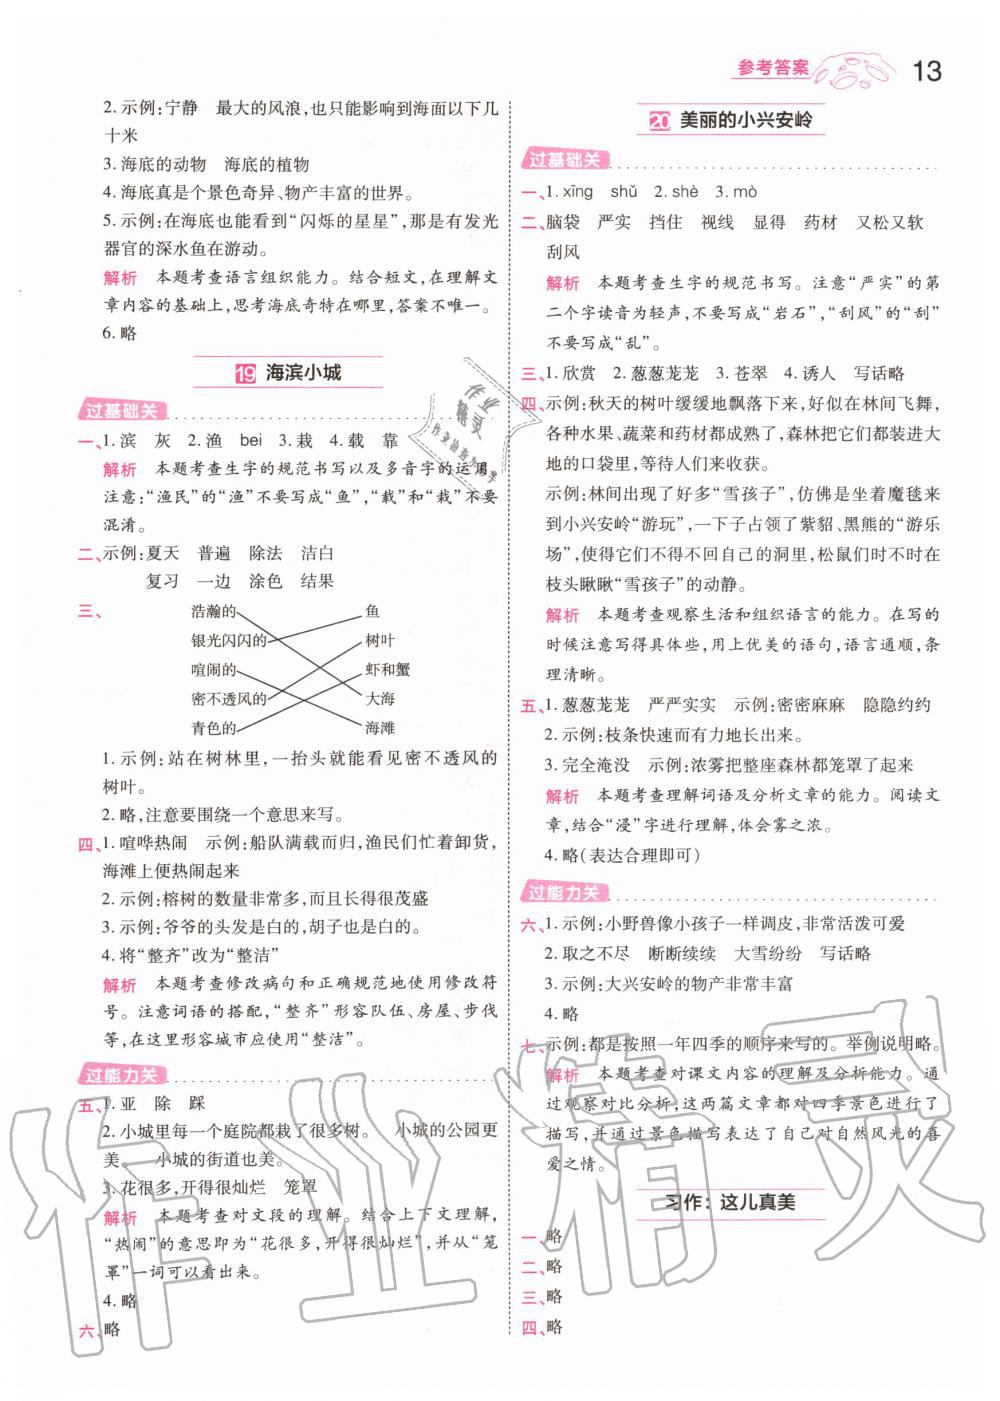 参考答案 13
2.示例:宁静 最大的风浪,也只能影响到海面以下几
十米
3.海底的动物 海底的植物
4.海底真是个景色奇异、物产丰富的世界。
5.示例:在海底也能看到“闪烁的星星”,那是有发光
器官的深水鱼在游动。
解析 本题考查语言组织能力。结合短文,在理解文
章内容的基础上,思考海底奇特在哪里,答案不唯一。
6.略
19 海滨小城
过基础关
一、1.滨 灰 2.渔 bei 3.栽 4.载 靠
解析 本题考查生字的规范书写以及多音字的运用。
注意:“渔民”的“渔”不要写成“鱼”,“载”和“栽”不要
混淆。
二、示例:夏天 普遍 除法 洁白
复习 一边 涂色 结果
三、
浩瀚的 鱼
银光闪闪的 树叶
喧闹的 虾和蟹
密不透风的 大海
青色的 海滩
1.示例:站在树林里,一抬头就能看见密不透风的
树叶。
2.略,注意要围绕一个意思来写。
四、1.喧哗热闹 示例:船队满载而归,渔民们忙着卸货,
海滩上便热闹起来
2.示例:榕树的数量非常多,而且长得很茂盛
3.示例:爷爷的头发是白的,胡子也是白的。
4.将“整齐”改为“整洁”
解析 本题考查修改病句和正确规范地使用修改符
号。注意词语的搭配,“整齐”形容队伍、房屋、步伐
等,在这里形容城市应使用“整洁”。
过能力关
五、1.亚 除 踩
2.小城里每一个庭院都栽了很多树。 小城的公园更
美。 小城的街道也美。
3.花很多,开得很灿烂 笼罩
解析 本题考查对文段的理解。结合上下文理解,
“热闹”的意思即为“花很多,开得很灿烂”,并从“笼
罩”一词可以看出来。
4.略
六、略
20 美丽的小兴安岭
过基础关
一、1.xīng shǔ 2.shè 3.mò
二、脑袋 严实 挡住 视线 显得 药材 又松又软
刮风
解析 本题考查生字的规范书写。注意“严实”的第
二个字读音为轻声,不要写成“岩石”,“刮风”的“刮”
不要写成“乱”。
三、1.欣赏 2.葱葱茏茏 3.苍翠 4.诱人 写话略
四、示例:秋天的树叶缓缓地飘落下来,好似在林间飞舞,
各种水果、蔬菜和药材都成熟了,森林把这些送进大
地的口袋里,等待人们来收获。
示例:林间出现了好多“雪孩子”,仿佛是坐着魔毯来
到小兴安岭“游玩”,一下子占领了紫貂、黑熊的“游乐
场”,使得它们不得不回自己的洞里,松鼠们时不时在
枝头瞅瞅“雪孩子”的动静。
解析 本题考查观察生活和组织语言的能力。在写的
时候注意写得具体些,用上优美的语句,语言通顺,条
理清晰。
五、1.葱葱茏茏 严严实实 示例:密密麻麻 隐隐约约
2.示例:枝条快速而有力地长出来。
3.完全淹没 示例:浓雾把整座森林都笼罩了起来
解析 本题考查理解词语及分析文章的能力。阅读文
章,结合“浸”字进行理解,体会雾之浓。
4.略(表达合理即可)
过能力关
六、1.示例:小野兽像小孩子一样调皮,非常活泼可爱
2.取之不尽 断断续续 大雪纷纷 写话略
3.示例:大兴安岭的物产非常丰富
4.略
七、示例:都是按照一年四季的顺序来写的。举例说明略。
解析 本题考查对课文内容的理解及分析能力。通
过观察对比分析,这两篇文章都对四季景色进行了
描写,并通过景色描写表达了自己对自然风光的喜
爱之情。
习作:这儿真美
一、略
二、略
三、略
四、略
作业精灵
作业
精灵